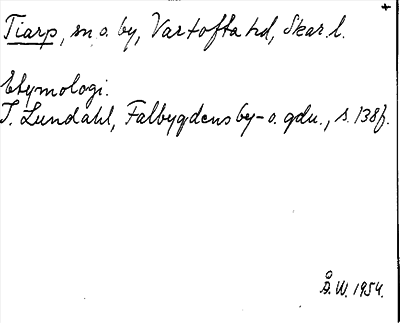 Tiarp, sn o. by, Vartofta hd, Skar. l.
Etymologi.
I. Lundahl, Falbygdens by- o. gdn., s. 138 f.
Å. W. 1954.